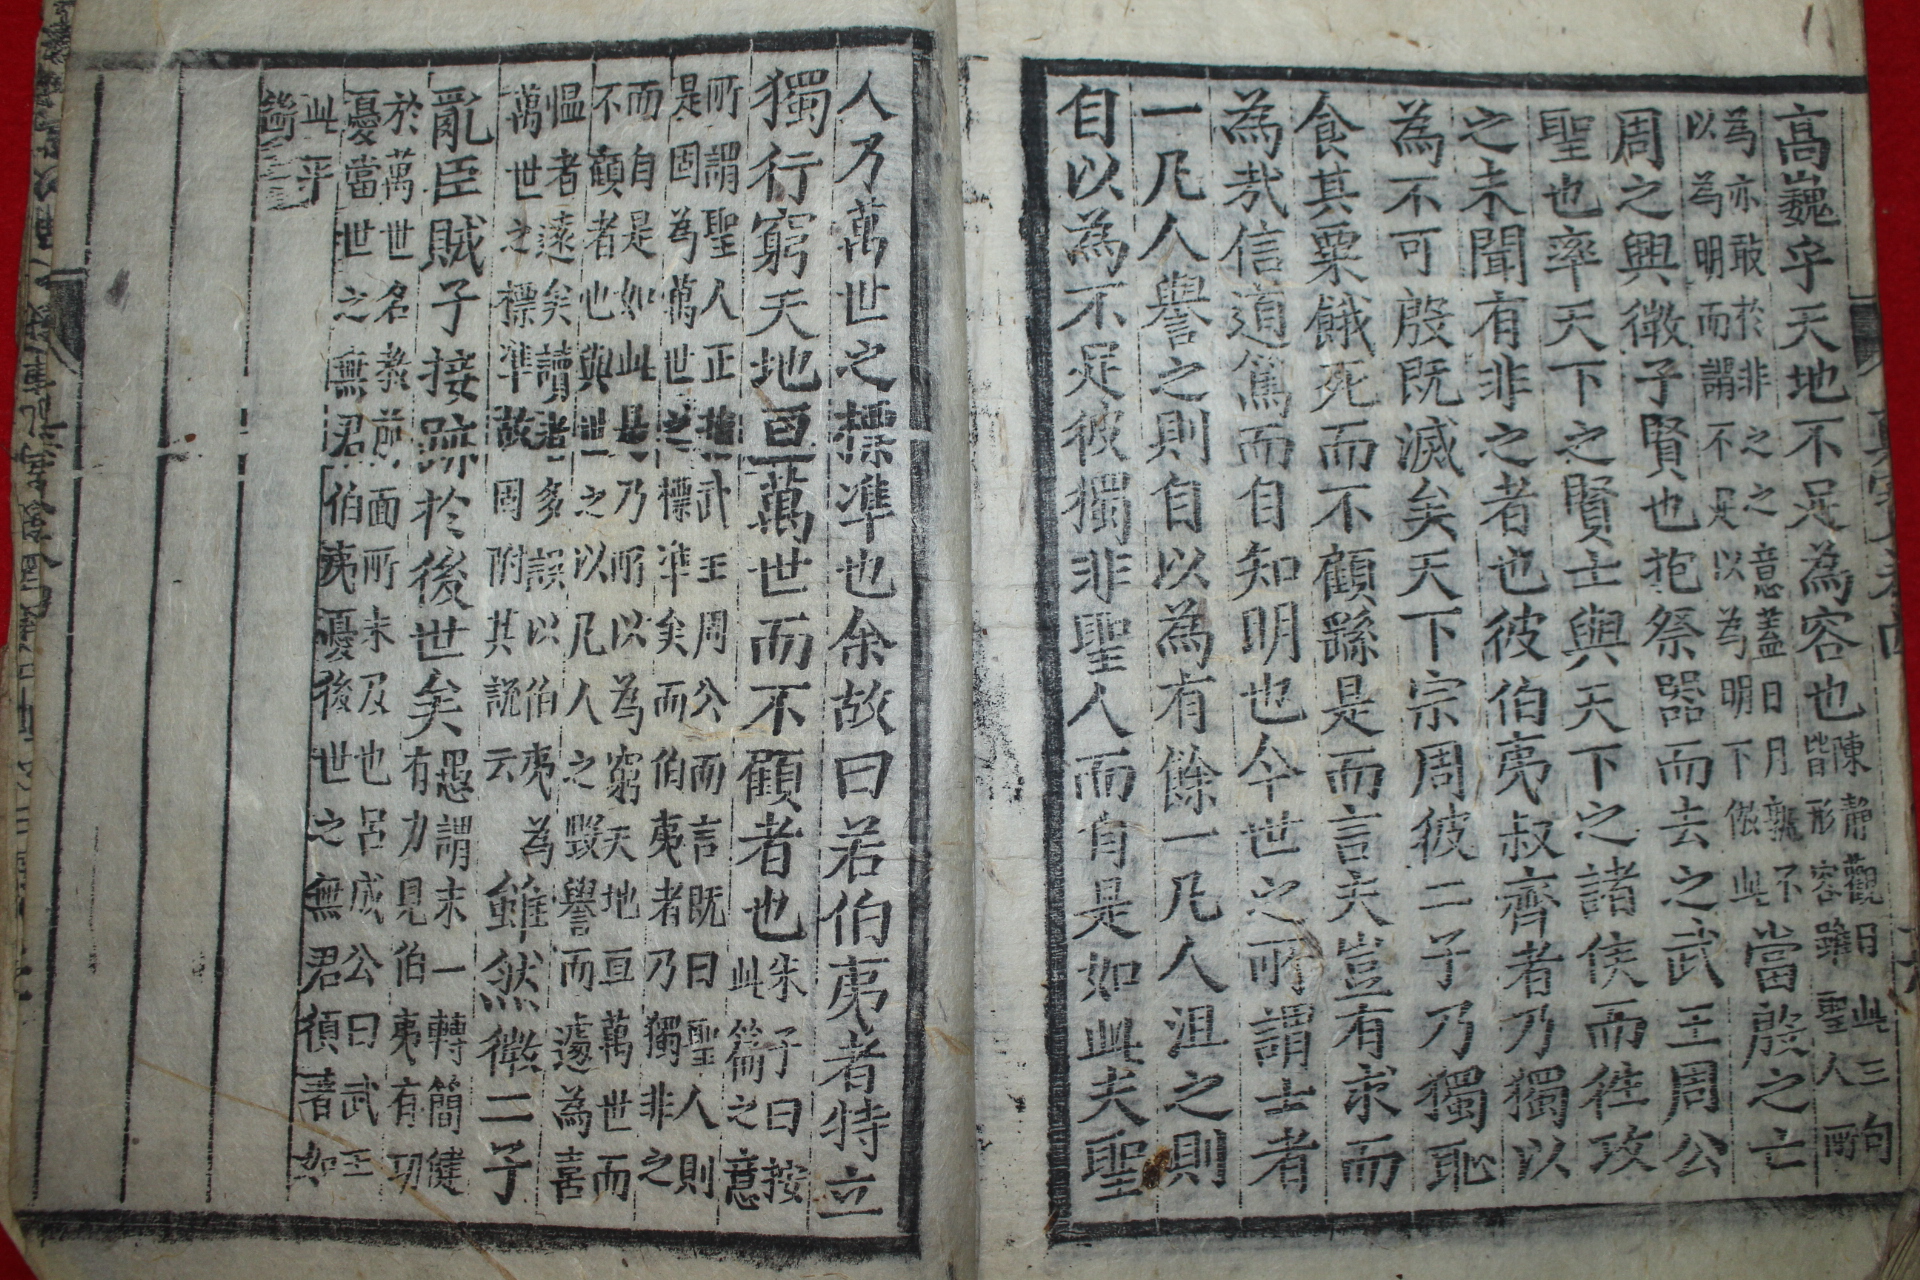 高巍乎天地不足為容也陳靜觀曰此三句
皆形容雖聖人所
為亦敢於非之之意蓋日月孰不
以為明而謂不足以為明下倣此
當殷之亡
周之興微子賢也抱祭器而去之武王周公
聖也率天下之賢士與天下之諸侯而往攻
之未聞有非之者也彼伯夷叔齊者乃獨以
為不可殷既滅矣天下宗周彼二子乃獨恥
食其粟餓死而不顧繇是而言夫豈有求而
為哉信道篤而自知明也今世之所謂士者
一凡人譽之則自以為有餘一凡人沮之則
自以為不足彼獨非聖人而自是如此夫聖
人乃萬世之標準也余故曰若伯夷者特立
獨行窮天地亘萬世而不顧者也朱子曰按
此篇之意
所謂聖人正指武王周公而言既曰聖人則
是固為萬世之標準矣而伯夷者乃獨非之
而自是如此是乃所以為窮天地亘萬世而
不顧者也與世之以凡人之毀譽而遽為喜
慍者遠矣讀者多誤以伯夷為
萬世之標準故因附其說云
雖然微二子
亂臣賊子接跡於後世矣愚謂末一轉簡健
有力見伯夷有功
於萬世名教前面所未及也呂成公曰武王
憂當世之無君伯夷憂後世之無君須著如
此乎